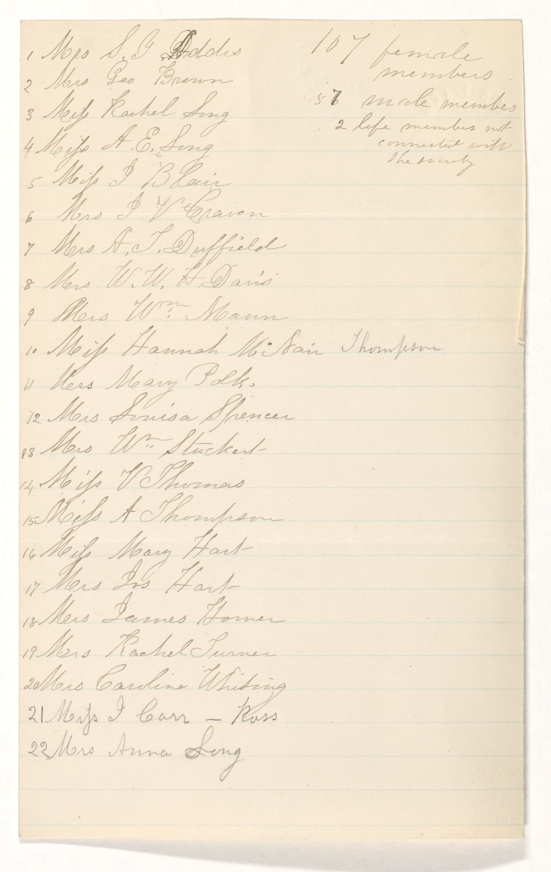 1 Mrs S. G. Addis
2 Mrs Geo Brown
3 Miss Rachel Long
4 Miss A. E. Long
5 Miss J Blair
6 Mrs J V Craven
7 Mrs A. T. Duffield
8 Mrs W. W. H. Davis
9 Mrs Wm Mann
10 Miss Hannah McNair Thompson
11 Mrs Mary Polk.
12 Mrs Louisa Spencer
13 Mrs Wm Stuckert
14 Miss V Thomas
15 Miss A Thompson
16 Miss Mary Hart
17 Mrs Jos Hart
18 Mrs James Horner
19 Mrs Rachel Turner
20 Mrs Caroline Whiting
21 Miss I Carr – Ross
22 Mrs Anna Long
107 female
members
57 male members
2 life members not
connected with
the society